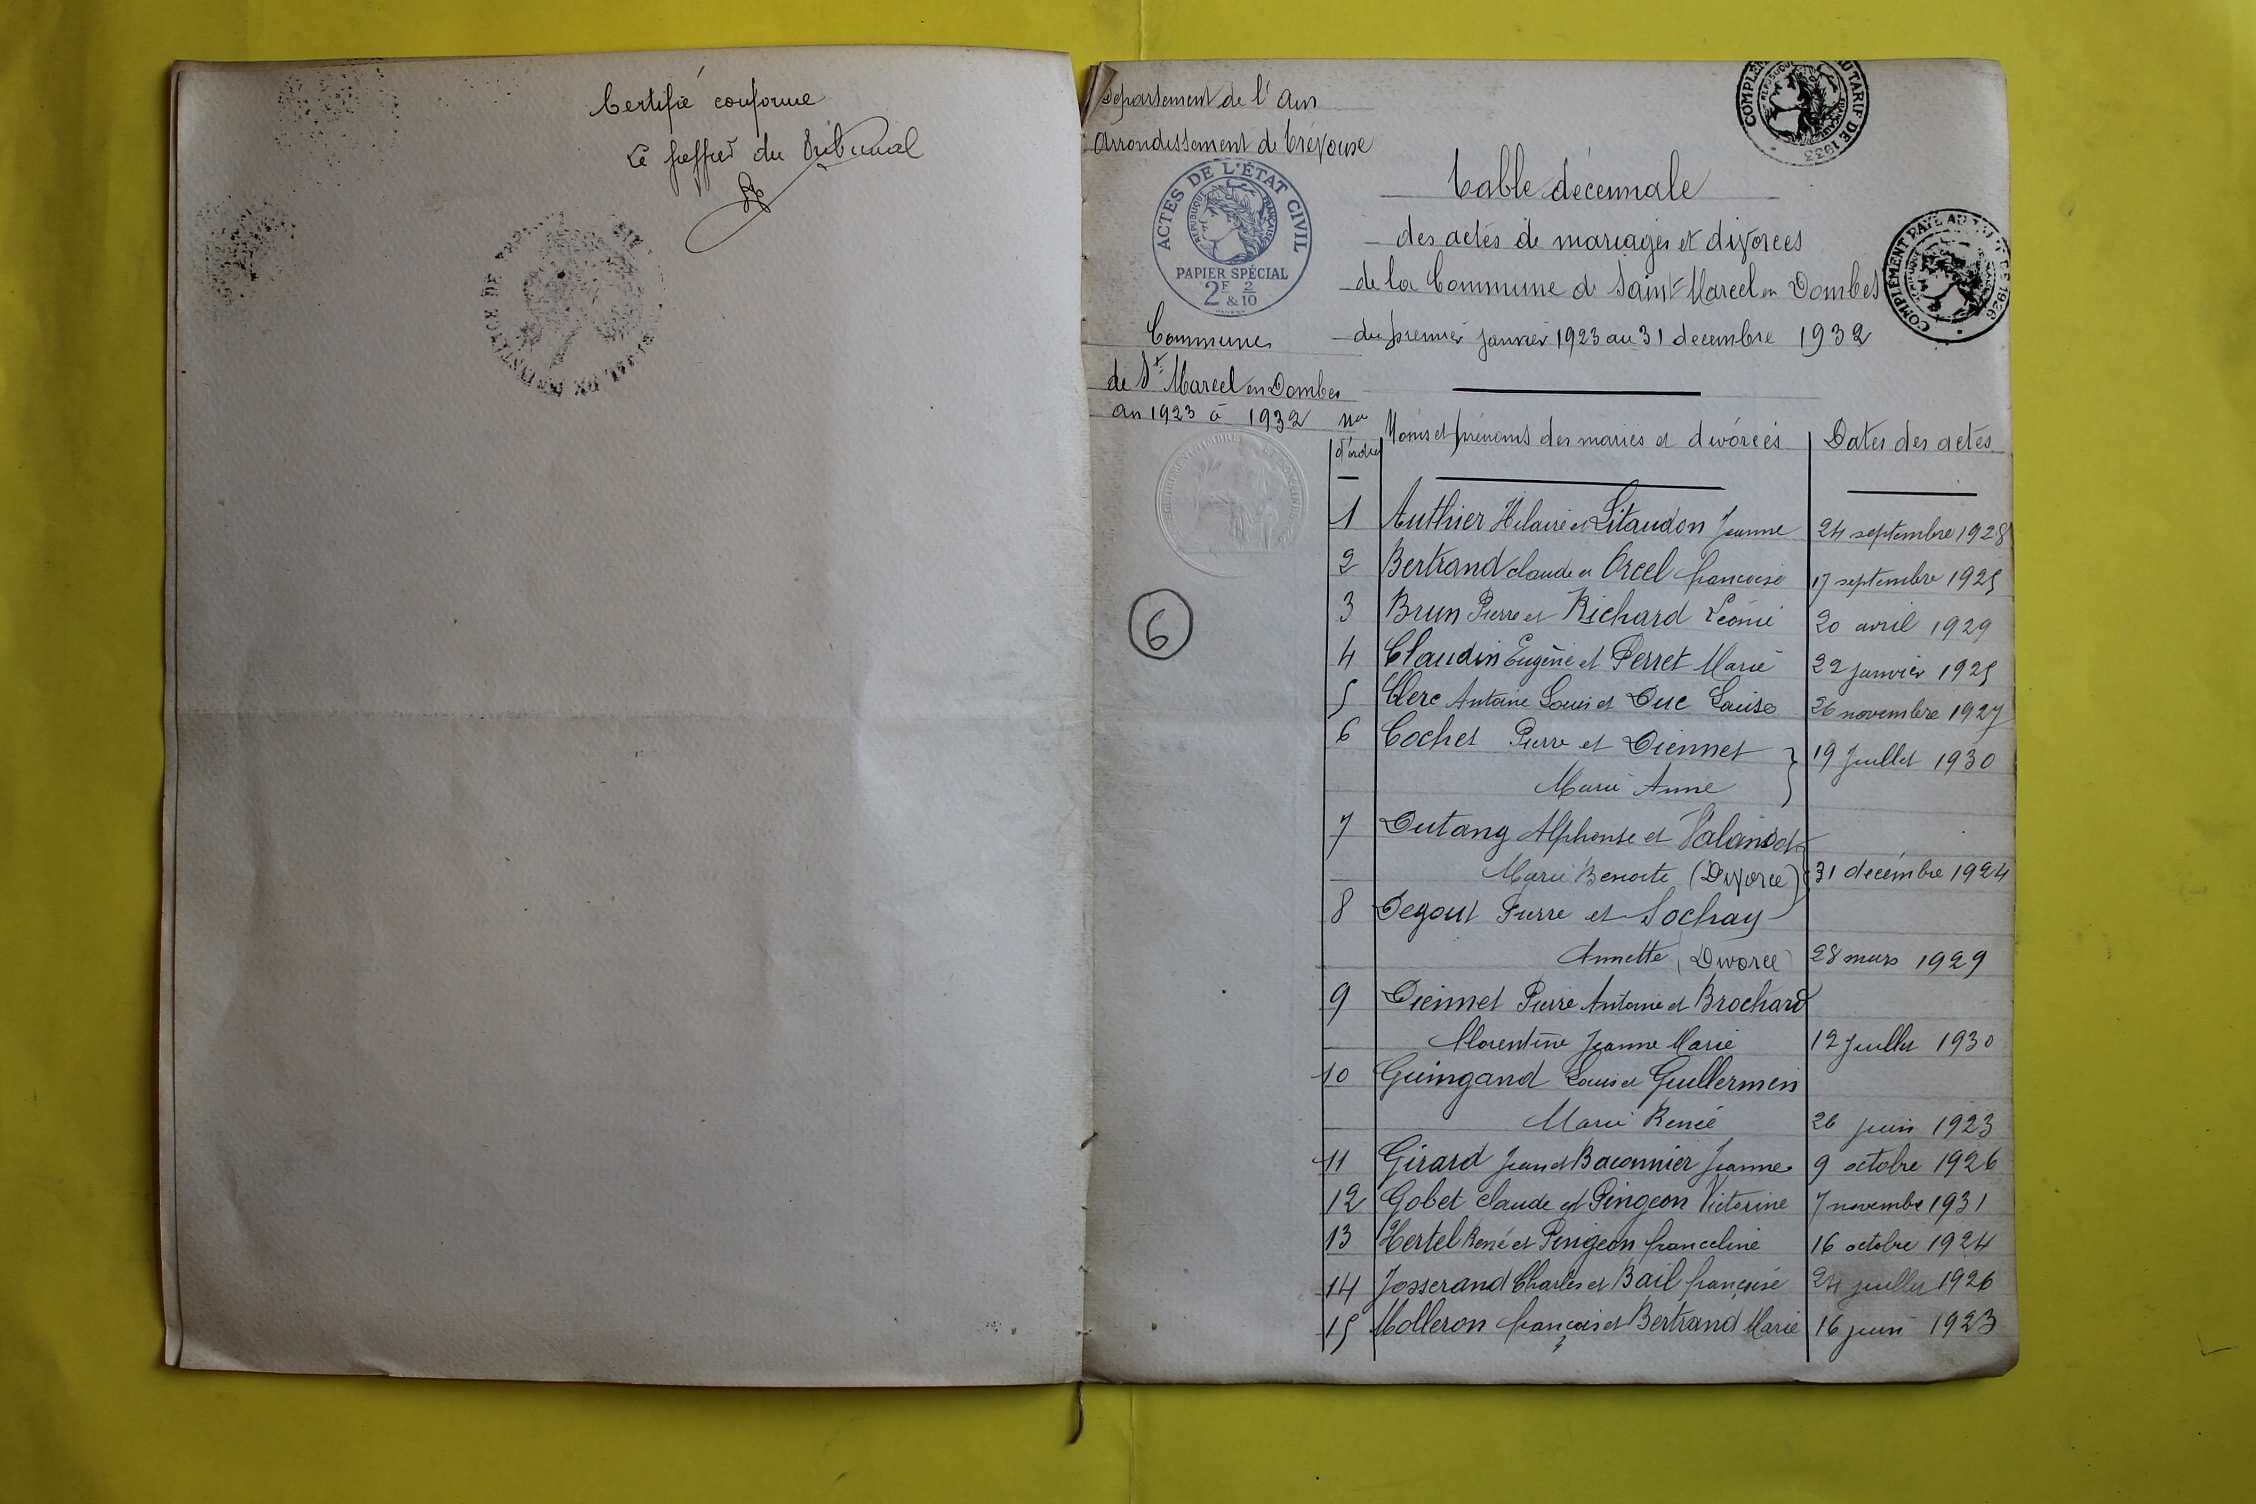 Certifié conforme
Le greffier du Tribunal
Département de l'Ain
Arrondissement de Trévoux
ACTES DE L'ÉTAT CIVIL
RÉPUBLIQUE FRANÇAISE
PAPIER SPÉCIAL
2F 2
&10
Commune
de St Marcel en Dombes
an 1923 à 1932
6
COMPLEMENT AU TARIF DE 1933
COMPLEMENT PAYÉ AU 1936
Table décennale
des actes de mariages et divorces
de la Commune de Saint Marcel en Dombes
du premier janvier 1923 au 31 decembre 1932
Nos d'ordre Noms et prénoms des mariés et divorcés Dates des actes
1 Authier Hilaire et Litaudon Jeanne 24 septembre 1928
2 Bertrand claude et Orcel françoise 17 septembre 1925
3 Brun Pierre et Richard Léonie 20 avril 1929
4 Claudin Eugène et Perret Marie 22 janvier 1925
5 Clerc Antoine Louis et Duc Louise 26 novembre 1927
6 Cochet Pierre et Diennet 19 Juillet 1930
Marie Anne
7 Dutang Alphonse et Valansot
Marie Benoite (Divorce) 31 décembre 1924
8 Degout Pierre et Sochay
Annette (Divorce) 28 mars 1929
9 Diennet Pierre Antoine et Brochard
Florentine Jeanne Marie 12 Juillet 1930
10 Guingand Louis et Guillermin
Marie Renée 26 juin 1923
11 Girard Jean et Baconnier Jeanne 9 octobre 1926
12 Gobet Claude et Pingeon Victorine 7 novembre 1931
13 Hertel René et Pingeon franceline 16 octobre 1924
14 Josserand Charles et Bail françoise 24 juillet 1926
15 Molleron françois et Bertrand Marie 16 juin 1923